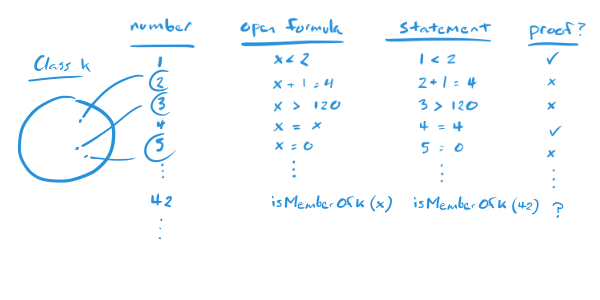 number open formula statement proof?
Class k
1 x < 2 1 < 2 ✓
2 x + 1 = 4 2 + 1 = 4 ×
3 x > 120 3 > 120 ×
4 x = x 4 = 4 ✓
5 x = 0 5 = 0 ×
⋮ ⋮ ⋮
42 isMemberOfk(x) isMemberOfk(42) ?
⋮